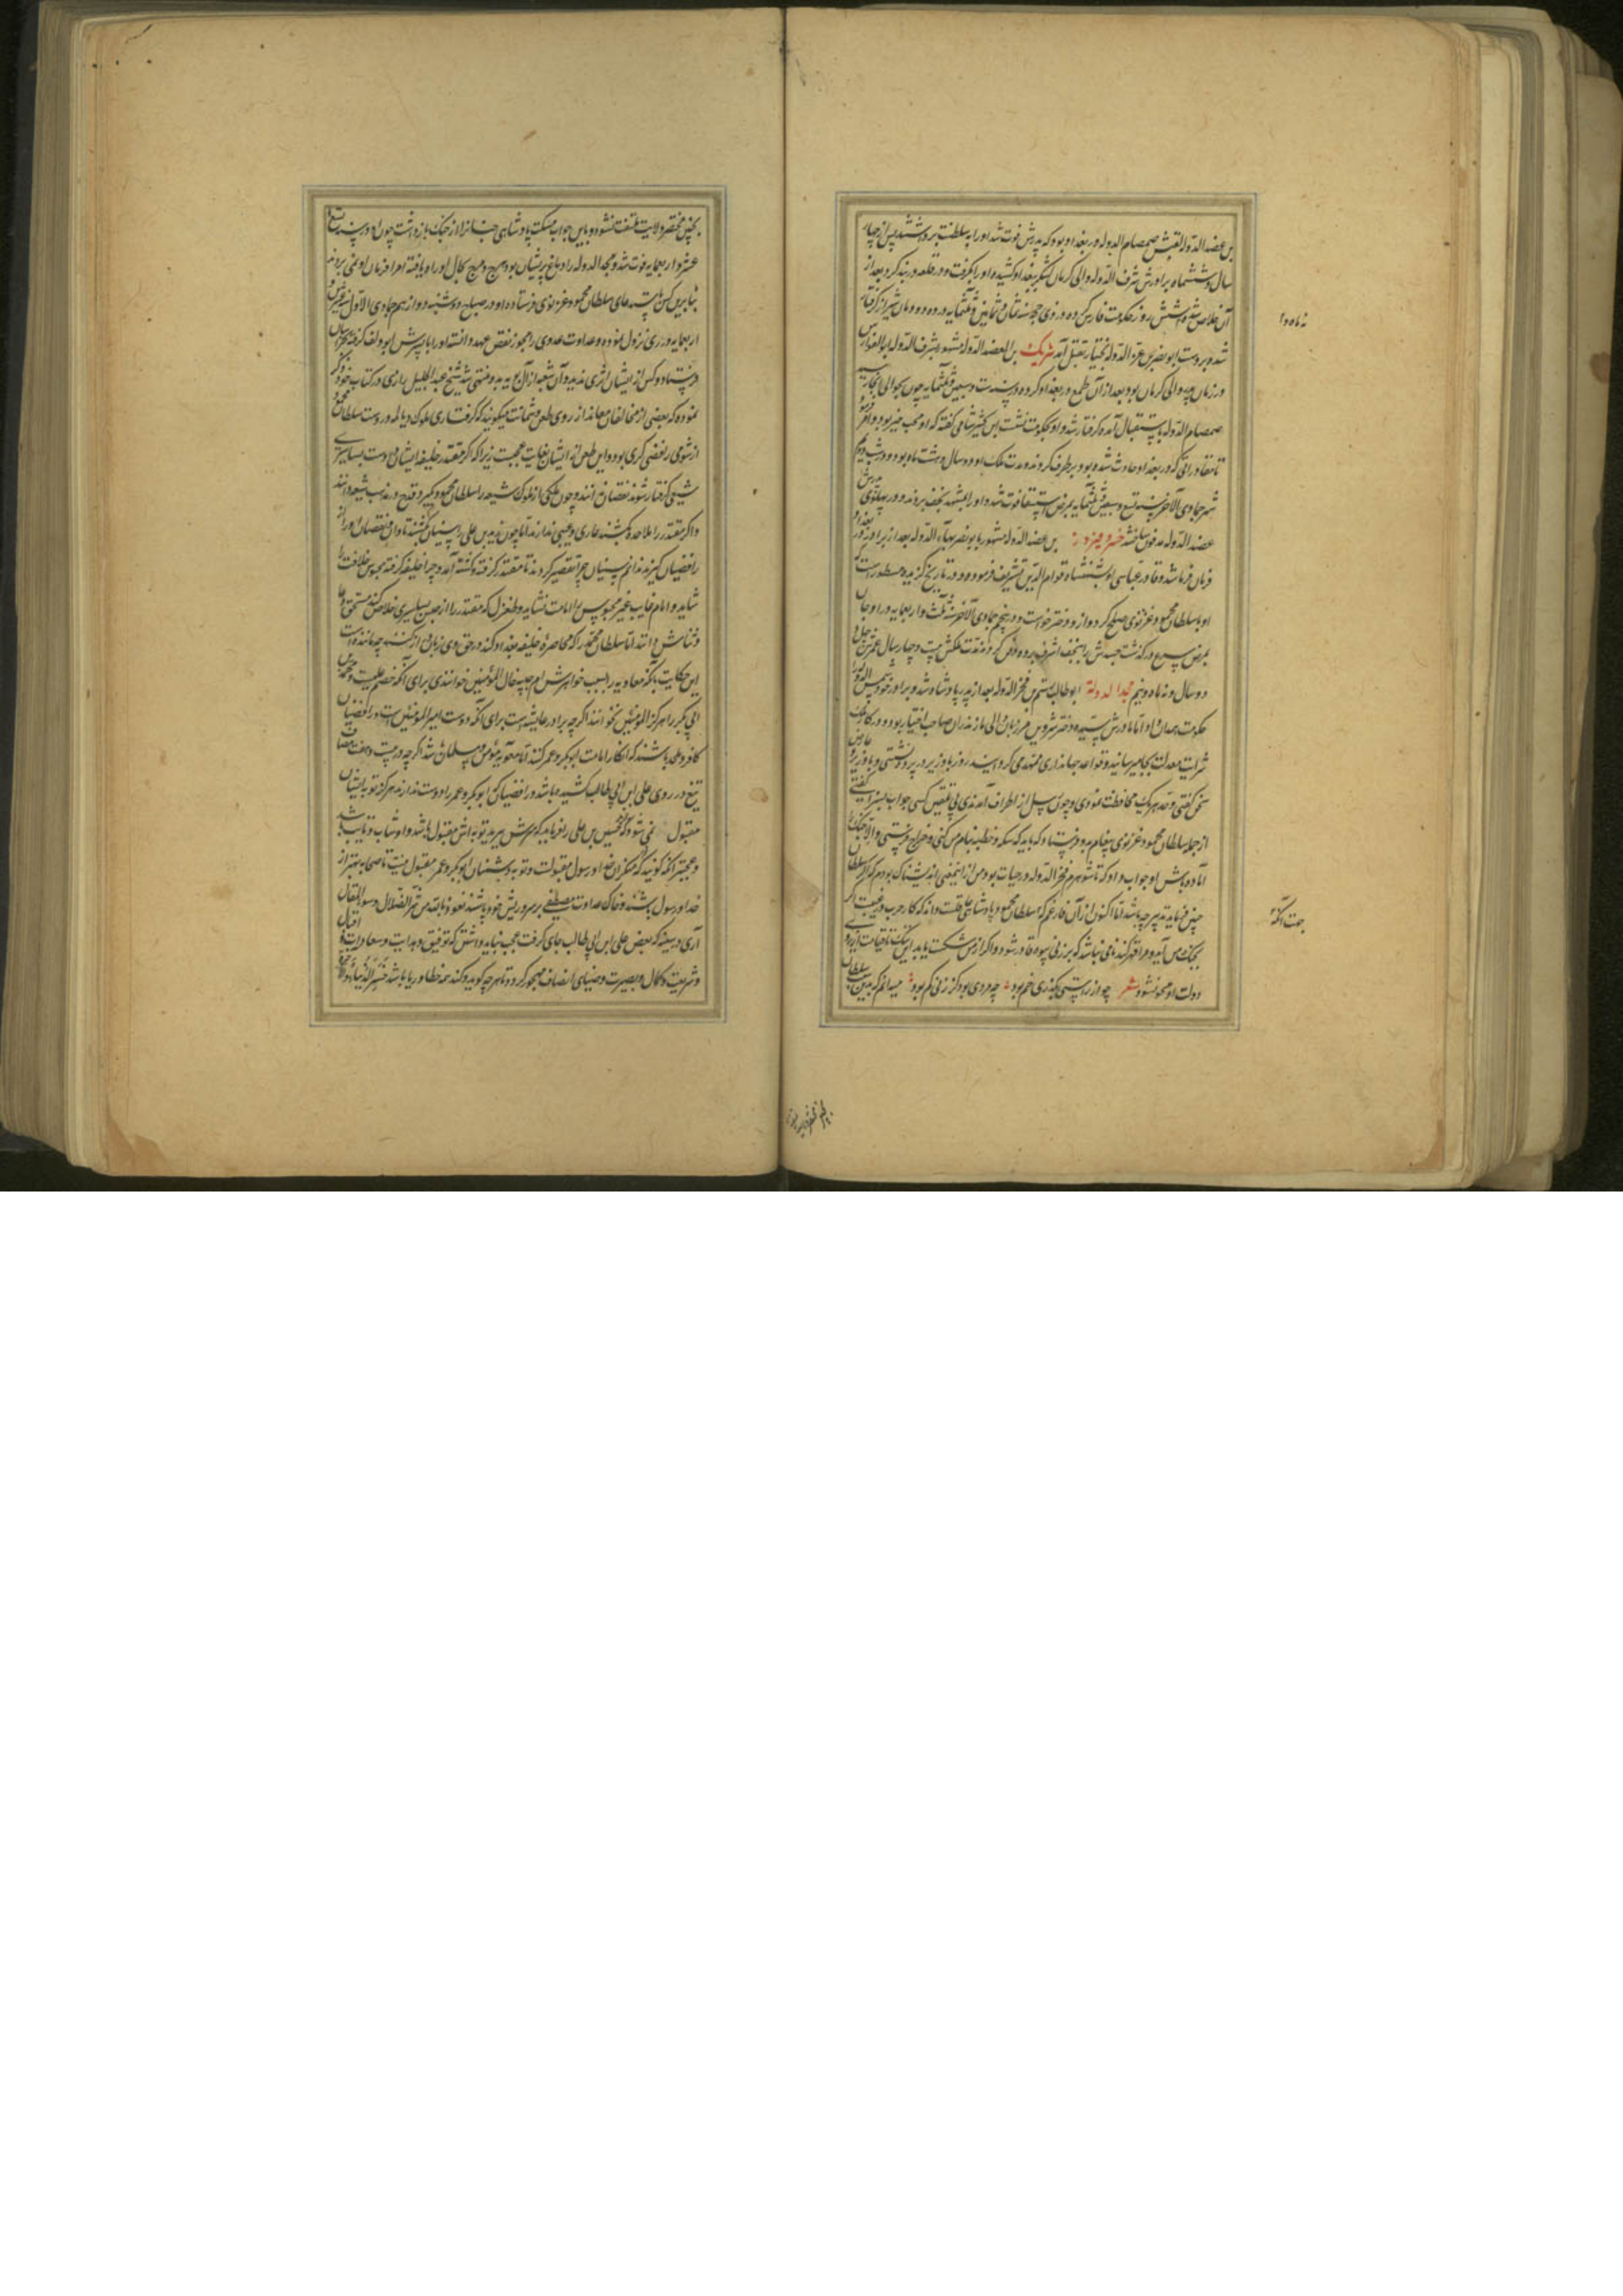 بن عضد الدوله لقبش صمصام الدوله در بغداد بود که پدرش فوت شد او را به سلطنت برداشتند پس از چهار
سال و ششماه برادرش شرف الدوله والی کرمان لشکر ببغداد کشیده او را بگرفت و در قلعه دربند کرد بعد از
آن خلاص شده شش روز حکومت فارس کرده در ذی حجه سنه ثمان و ثمانین و ثلثمایه در ده دودمان شیراز گرفتار
نه ماه و
شد و بر دست ابو نصر بن عز الدوله بختیار بقتل آمد شریک بن العضد الدوله مشهور بشرف الدوله ابو الفوارس
در زمان پدر والی کرمان بود بعد از آن طمع در بغداد کرده در سنه ست و سبعین و ثلثمایه چون بحوالی آنجا رسید
صمصام الدوله باستقبال آمده گرفتار شد و او بحکومت نشست ابن کثیر شامی گفته که او محب خیر بود و امر فرمود
تا مصادراتی که در بغداد حادث شده بود بر طرف کردند مدت ملک او دو سال و هشت ماه بود و در شب دویم
شهر جمادی الآخر سنه تسع و سبعین و ثلثمایه بمرض استسقا فوت شد و او را بمشهد نجف بردند و در پهلوی پدرش
عضد الدوله مدفون ساختند خسرو فیروز بن عضد الدوله مشهور بابو نصر بهاء الدوله بعد از برادر در بغداد
فرمان فرما شد و قادر عباسی او را شهنشاه قوام الدین تشریف فرموده و در تاریخ گزیده مسطور است که
او با سلطان محمود غزنوی صلح کرد و از و دختر خواست و در پنجم جمادی الآخر سنه ثلث و اربعمایه در ارجان
بمرض صرع درگذشت جسدش را بنجف اشرف برده دفن کردند مدت ملکش بیست و چهار سال عمرش چهل و
دو سال و نه ماه و نیم مجد الدولة ابو طالب رستم بن فخر الدوله بعد از پدر پادشاه شد و برادر خود شمس الدوله را
حکومت همدان داد اما مادرش سیده دختر شروین مرزبان والی مازندران صاحب اختیار بود و در کار ملک
شرایط معدلت بجای میرسانید و قواعد جهانداری ممهد می گردانید روز با وزیر در پرده نشستی و با وزیر و عارض
سخن گفتی و قدر هر یک محافظت نمودی و چون رسل از اطراف آمدندی بی تلقین کسی جواب بسزا گفتی
از جمله سلطان محمود غزنوی پیغام بدو فرستاد که باید که سکه و خطبه بنام من کنی و خراج فرستی و الا جنگ را
آماده باش او جواب داد که تا شوهرم فخر الدوله در حیات بود من ازین معنی اندیشناک بودم که اگر سلطان
چنین فرماید تدبیر چه باشد اما اکنون از آن فارغم که سلطان محمود پادشاهی عاقلست و داند که کار حرب در غیبست اگر
جهت آنکه
بجنگ من آید و مرا قهر کند نامی نباشد که بر زنی بیوه قادر شود و اگر از من شکست یابد این ننگ تا قیامت از روی
دولت او محو نشود شعر چو از راستی بگذری خم بود چه مردی بود کز زنی کم بود میدانم که بدین سلطان
بچنین مختصر ولایت ملتفت نشود و باین جواب مسکت پادشاهی چنان را از جنگ بازداشت چون او در سنه تسع
عشر و اربعمایه فوت شد و مجد الدوله را دماغ پریشان بود هرج و مرج کمال بحال او راه یافته امرا فرمان او نمی بردند
بنا برین کس باستدعای سلطان محمود غزنوی فرستاده او در صباح دوشنبه دوازدهم جمادی الاول سنه عشرین و
اربعمایه در ری نزول نموده و عداوت عدوی را مجوز نقض عهد دانسته او را با پسرش ابو دلف گرفته بخراسان
فرستاد و کس از ایشان اثری ندید و آن شعبه از آل بویه بدو منتهی شد شیخ عبد الجلیل رازی در کتاب خود ذکر
نموده که بعضی از مخالفان معاند از روی طعن و شماتت میگویند که گرفتاری ملوک دیالمه در دست سلطان محمود
از شومی رافضی گری بود و این طعن از ایشان بغایت عجبست زیرا که اگر مقتدر خلیفه ایشان در دست بساسیری
شیعی گرفتار شود نقصان ندانند و چون ملکی از ملوک شیعه را سلطان محمود گیرد قدح در مذهب شیعه دانند
و اگر مقتدر را ملاحده بکشند عاری و عیبی ندارند اما چون زید بن علی را سنیان بکشند تاوان و نقصان او را از
رافضیان گیرند ندانم سنیان چرا تقصیر کردند تا مقتدر گرفته و کشته آمد و چرا خلیفه گرفته محبوس خلافت را
شاید و امام غایب غیر محبوس را امامت نشاید و طغرل که مقتدر را از حبس بساسیری خلاص کند مستحق دعا
و ثنایش دانند اما سلطان محمد را که محاصره خلیفه بغداد کند در حق وی زبان از گفتنیها چه مانده است
این حکایت بآنکه معاویه را بسبب خواهرش ام حبیبه خال المؤمنین خوانندی برای آنکه خصم علیست و محمد بن
ابی بکر را هرگز خال المؤمنین نخوانند اگر چه برادر عایشه است برای آنکه دوست امیر المؤمنین است و رافضیان
کافر و ملحد باشند که انکار امامت ابوبکر و عمر کنند اما معاویه مؤمن و مسلمان شد اگر چه در بیست و هفت مصاف
تیغ در روی علی ابن ابی طالب کشیده باشد و رافضیان که ابوبکر و عمر را دوست ندارند هرگز توبه ایشان
مقبول نمی شود که حسین بن علی رغما بدید که سرش ببرید توبه اش مقبول باشد و او شاب و تایب باشد
و عجبتر آنکه گویند که منکران خدا و رسول مقبولست و توبه دشمنان ابوبکر و عمر مقبول نیست تا صحابه بهتر از
خدا و رسول باشند و خاک عداوت مصطفی بر سر و ریش خود باشند نعوذ بالله من شر الضلال و سوء المقال
آری در سینه که بغض علی ابن ابی طالب جای گرفت عجب نباید داشتن که توفیق و هدایت و سعادت و اقبال
و شریعت و کمال و بصیرت و ضیای انصاف مهجور گردد تا هر چه گوید و کند همه خطا و ریا باشد خسر الدنیا و الآخرة
بچنین مختصر ولایت